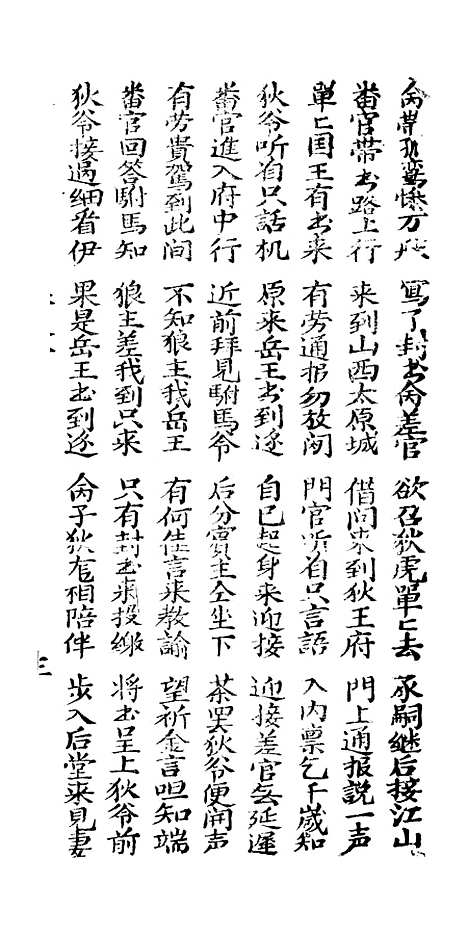 命帶孤鸞愁万般 寫了封书命差官 欲召狄虎單匕去 承嗣继后接江山
畨官帶书路上行 来到山西太原城 借问来到狄王府 門上通报説一声
單匕国王有书来 有劳通报勿放闲 門官听着只言語 入内禀乞千歲知
狄爷听着只話机 原来岳王书到逐 自己起身来迎接 迎接差官無延遲
畨官進入府中行 近前拜見駙馬爷 后分賓主仝坐下 茶罢狄爷便開声
有劳貴駕到此间 不知狼主我岳王 有何佳言来教諭 望祈金言呾知端
畨官回答駙馬知 狼主差我到只来 只有封书来投繳 将书呈上狄爷前
狄爷接過細看伊 果是岳王书到逐 命子狄虎相陪伴 步入后堂来見妻
三